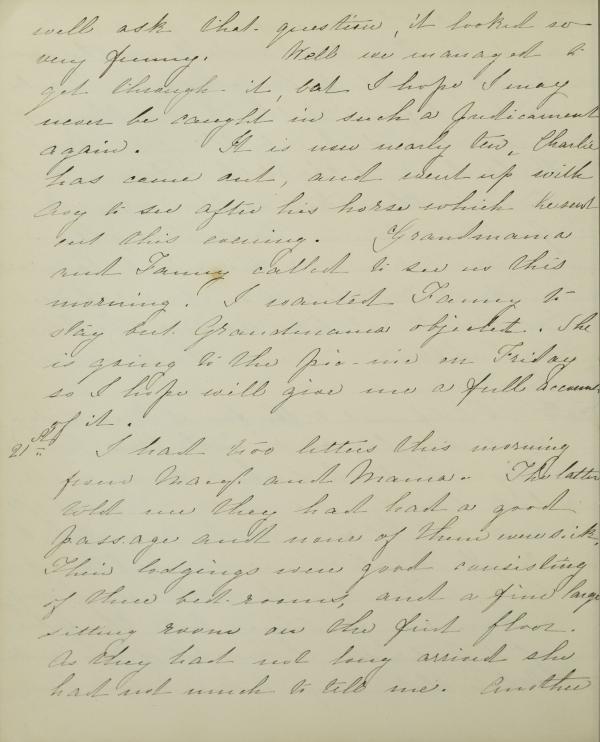 well ask that question, it looked so
very funny. Well we managed to
get through it, but I hope I may
never be caught in such a predicament
again. It is now nearly ten, Charlie
has come out, and went up with
to see after his horse which he sent
out this evening. Grandmama
and Fanny called to see us this
morning. I wanted Fanny to
stay but Grandmama objected. She
is going to the pic-nic on Friday
so I hope will give me a full account
of it.
21st I had two letters this morning
from and Mama. The latter
told me they had had a good
passage and none of them were sick.
Their lodgings were good consisting
of three bed-rooms, and a fine large
sitting room on the first floor.
As they had not long arrived she
had not much to tell me. Another